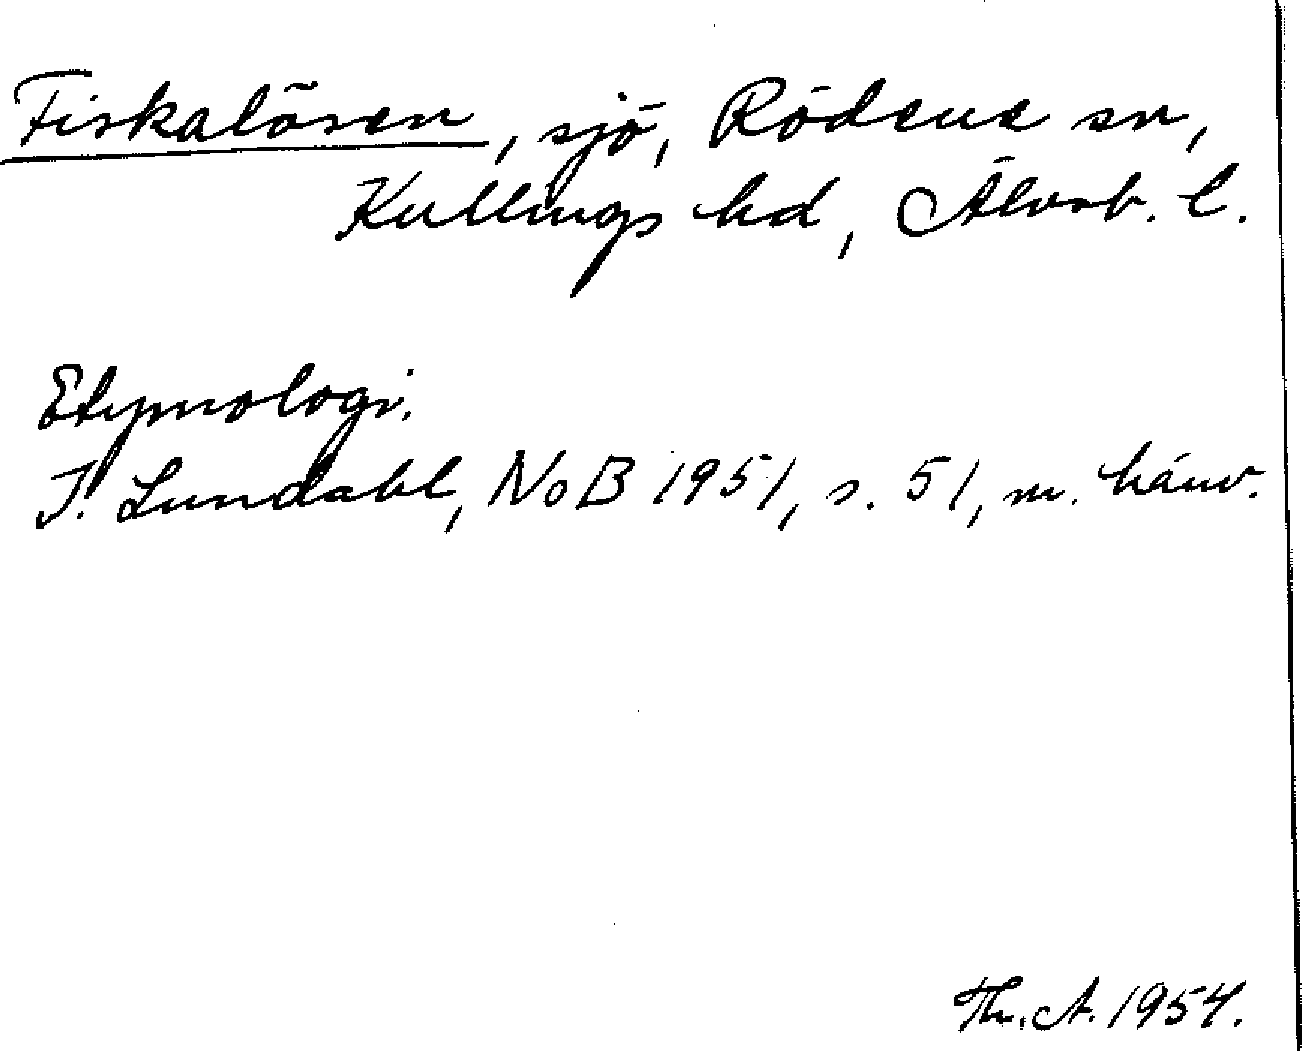 Fiskalösen, sjö, Rödene sn,
Kullings hd, Älvsb. l.
Etymologi.
I. Lundahl, NoB 1951, s. 51, m. hänv.
Th. A. 1954.